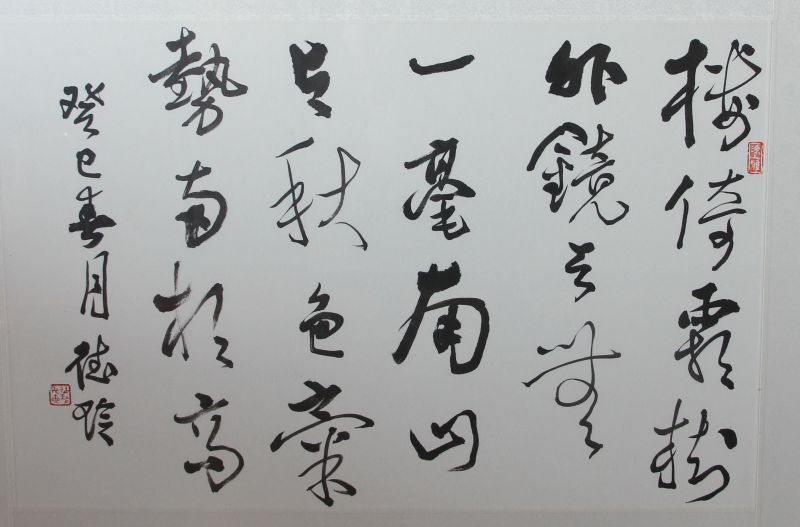 樓倚霜樹
外鏡天無
一毫南山
与秋色氣
勢兩相高
癸巳春月 德玲